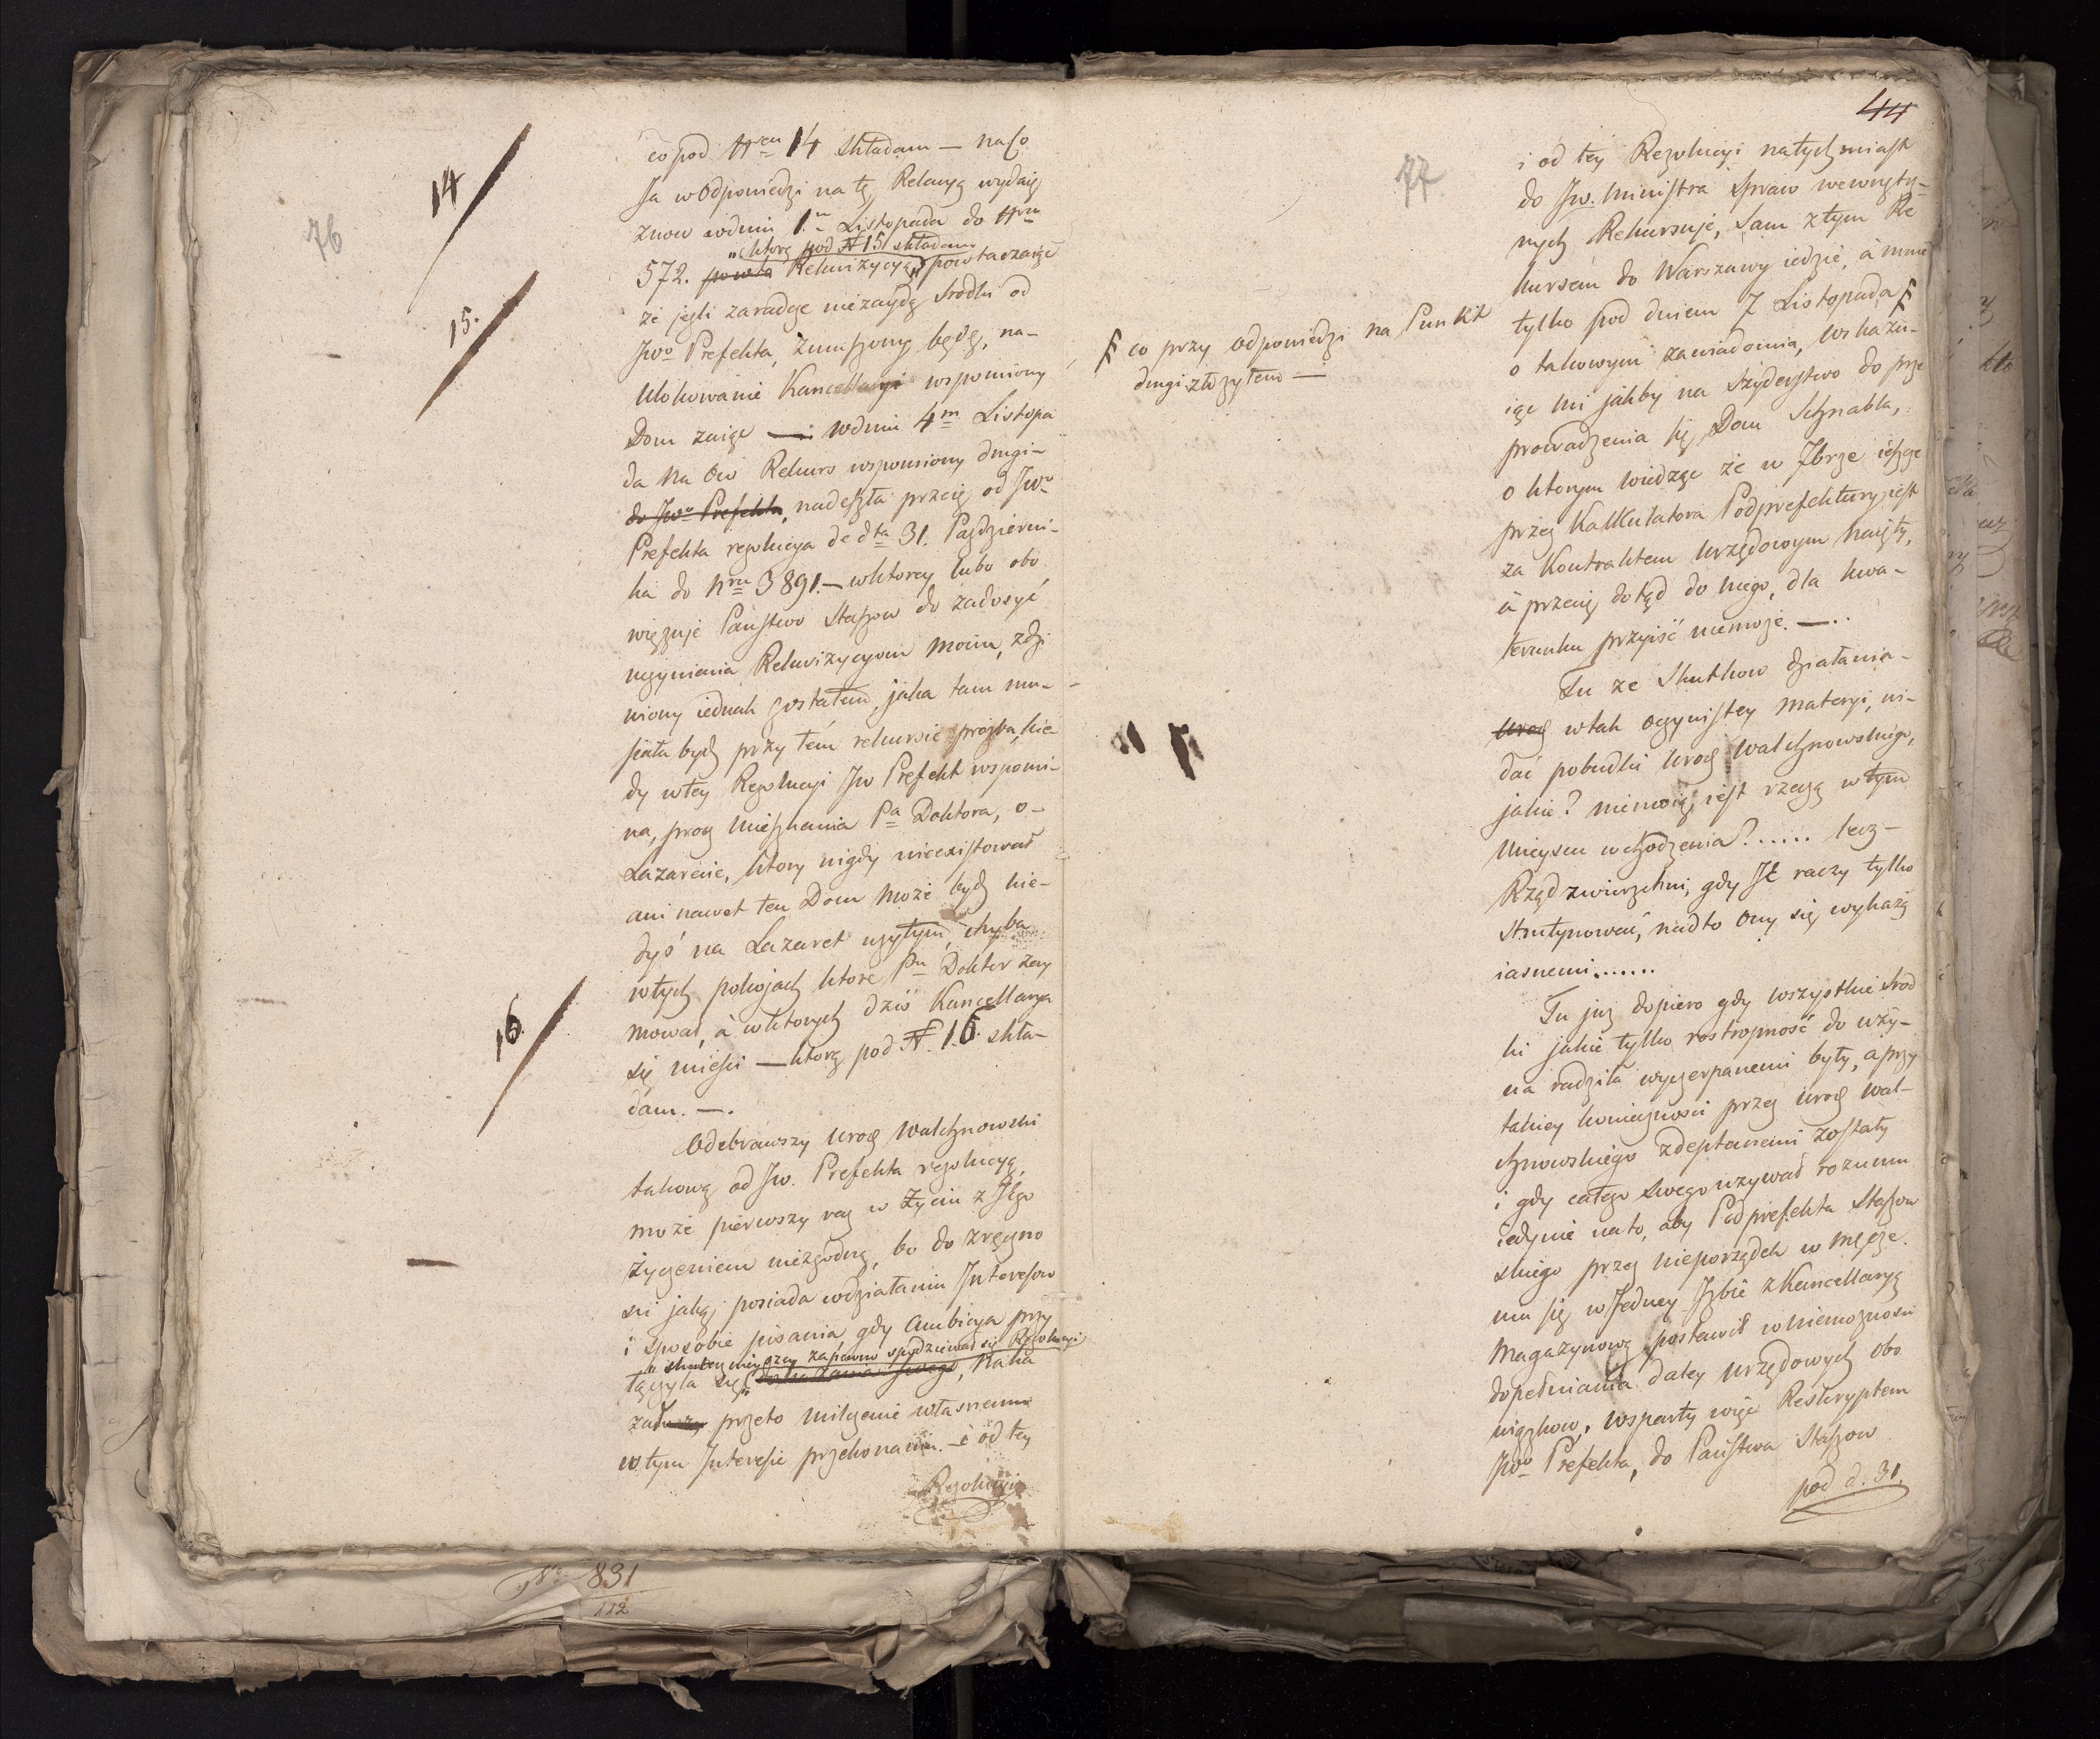 76
14
15.
16.
co pod Nrem 14 składam — na co
Ja w Odpowiedzi na tę Relacyą wydaię
znow w dniu 1.m Listopada do Nru
"(ktorą pod N 15 składam
572. powta Rekwizycyą" powtarzaiąc
że jeśli zaradcze niezaydą środki od
JWo Prefekta, zmuszony będę, na-
Ulokowanie Kancellaryi wspomiony
Dom zaiąc — w dniu 4m Listopa
da Na ów Rekurs wspomiony drugi-
do JWo Prefekta, nadeszła przecię od JWo
Prefekta rezolucya de dta 31. Październi-
ka do Nru 3891. — w ktorey lubo obo
więzuje Państwo Staszow do zadosyć
uczynienia Rekwizycyom moim, zdzi
wiony iednak zostałem, jaka tam mu-
siała bydź przy tém rekursie prozba, kie-
dy w tey Rezolucyi JW Prefekt wspomi-
na, procz Mieszkania Pa Doktora, o-
Lazarecie, ktory nigdy nieexistował
ani nawet ten Dom może bydź kie-
dyś na Lazaret użytym, chyba
w tych pokojach ktore Pn Doktor zay
mował, à w ktorych dziś Kancellarya
się mieści — ktorą pod N. 16. skła-
dam. —.
Odebrawszy Uroð Walchnowski
takową od JW. Prefekta rezolucyą,
może pierwszy raz w Życiu z Jego
życzeniem niezgodną, bo do zręczno
sci jaką posiada w działaniu Interesow
i sposobie pisania, gdy ambicya przy
łączyła się, Naka
zał przeto milczenie własnemu
w tym Interesie przekonaniu. — i od tey
Rezolucyi
No. 831
112
44
77
§ co przy odpowiedzi na Punkt
drugi złożyłem —
i od tey Rezolucyi natychmiast
do JW. Ministra Spraw wewnętrz-
nych Rekursuje, Sam z tym Re
kursem do Warszawy iedzie, à mnie
tylko pod dniem 7 Listopada §
o takowym zawiadomia, wskazu-
iąc mi jakby na szyderstwo do prze
prowadzenia się, Dom Schnabla,
o ktorym wiedząc że w 7brze ieszcze
przez Kalkulatora Podprefektury iest
za Kontraktem Urzędowym naięty,
à przecię dotąd do niego, dla kwa-
terunku przyiść niemoże. — . .
Tu ze Skutkow działania-
Uroð w tak oczywistey materyi, wi-
dać pobudki Uroð Walchnowskiego,
jakie? niemoią iest rzeczą w tym
Mieyscu wchodzenia? . . . . . lecz-
Rząd zwierzchni, gdy Je raczy tylko
skrutynować, nadto Ony się wykażą
iasnemi . . . . . . .
Tu już dopiero gdy wszystkie środ
ki jakie tylko rostropność do uży-
cia radziła wyczerpanemi były, a przy
takiey konieczności przez Uroð Wal-
chnowskiego zdeptanemi zostały
i gdy całego swego używał rozumu
iedynie na to, aby Podprefekta Staszow
skiego przez nieporządek w
mu się w Jedney Izbie z Kancellaryą
Magazynową, postawił w niemożności
dopełniania daley urzędowych obo
wiązkow, wsparty więc Reskryptem
JWo Prefekta, do Państwa Staszow
pod d. 31.